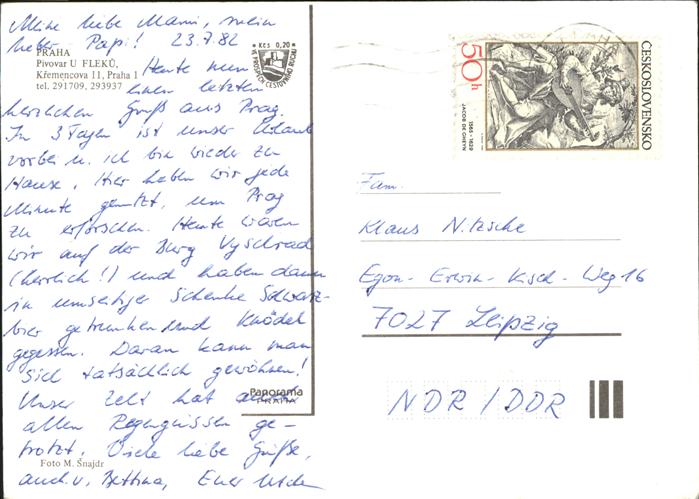 Meine liebe Mami, mein
lieber Papi! 23.7.82
PRAHA
Pivovar U FLEKŮ,
Křemencova 11, Praha 1
tel. 291709, 293937
Kčs 0,20
VE PROSPĚCH CESTOVNÍHO RUCHU
Heute nun
einen letzten
herzlichen Gruß aus Prag.
In 3 Tagen ist unser Urlaub
vorbei u. ich bin wieder zu
Hause. Hier haben wir jede
Minute genutzt, um Prag
zu erforschen. Heute waren
wir auf der Burg Vyschrad
(herrlich!) und haben dann
in umseitiger Schenke Schwarz-
bier getrunken und Knödel
gegessen. Daran kann man
sich tatsächlich gewöhnen!
Unser Zelt hat
allen Regengüssen ge-
trotzt. Viele liebe Grüße,
auch v. Bettina, Euer
Panorama
PRAHA
Foto M. Šnajdr
ČESKOSLOVENSKO
50 h
1565-1629
JACOB DE GHEYN
Fam.
Klaus Nitzsche
Egon-Erwin-Kisch-Weg 16
7027 Leipzig
NDR / DDR